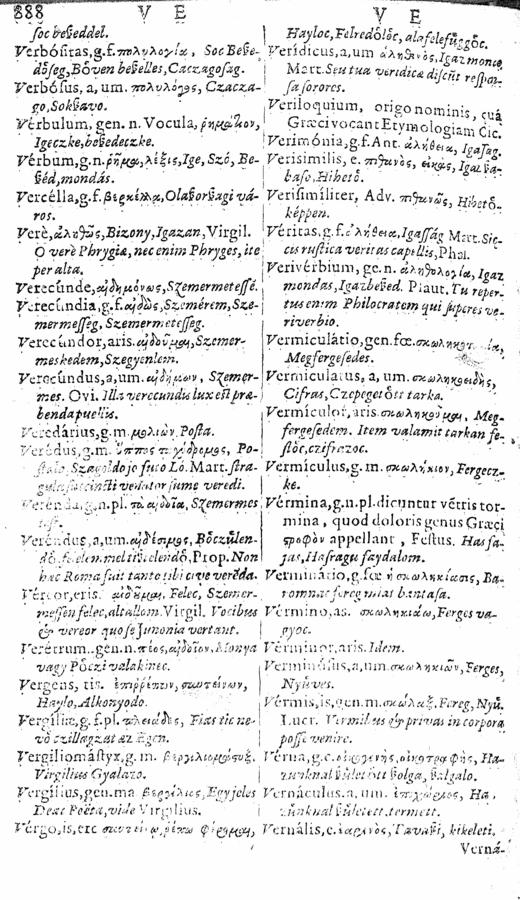 888 V E
V E
soc beßeddel.
Verbósitas, g.f. πολυλογία, Soc Beße-
dőseg, Bőven beßelles, Caczagosag.
Verbósus, a, um. πολυλόγος, Czacza-
go, Sokßavo.
Vérbulum, gen. n. Vocula, ῥημάτιον,
Igeczke, beßedeczke.
Vérbum, g.n. ῥῆμα, λέξις, Ige, Szó, Be-
ßéd, mondás.
Vercélla, g.f. βερκέλλα, Olaßorßagi vá-
ros.
Verè, ἀληθῶς, Bizony, Igazan, Virgil.
O verè Phrygiæ, nec enim Phryges, ite
per alta.
Verecúnde, αἰδημόνως, Szemermetessé.
Verecúndia, g.f. αἰδὼς, Szemérem, Sze-
mermesseg, Szemermetesseg.
Verecúndor, aris. αἰδοῦμαι, Szemer-
meskedem, Szegyenlem.
Verecúndus, a, um. αἰδήμων, Szemer-
mes. Ovi. Illa verecundu lux est præ-
benda puellis.
Veredárius, g.m. Posta.
Verédus, g.m. ἵππος ταχύδρομος, Po-
staio, Szagoldo jo futo Ló. Mart. stra-
gula succincti venator sume veredi.
Verénda, g.n.pl. τὰ αἰδοῖα, Szemermes
Veréndus, a, um. αἰδέσιμος, Bőczűlen-
dő. Prop. Non
hæc Roma fuit tanto tibi cive verēda.
Véreor, eris. αἰδοῦμαι, Felec, Szemer-
messen felec, altallom. Virgil. Vocibus
& vereor quo se Junonia vertant.
Verétrum, gen. n. πέος, αἰδοῖον, Monya
vagy Pőczi valakinec.
Vergens, tis. ἐπιῤῥέπων,
Haylo, Alkonyodo.
Vergiliæ, g.f.pl. πλειάδες, Fias tic ne-
vő czillagzat az egen.
Vergiliomástyx, g.m. βεργιλιομάστιξ,
Virgilius Gyalazo.
Vergílius, gen. ma. βεργίλιος, Egy jeles
Deac Poëta, vide Virgilius.
Vérgo, is, ere
Hayloc, Felredőlőc, ala felefűggőc.
Verídicus, a, um ἀληθινὸς, Igaz mondo
Mart. Seu tua veridicæ discūt respon-
sa sorores.
Veriloquium, origo nominis, quā
Græci vocant Etymologiam Cic.
Verimónia, g.f. Ant. ἀλήθεια, Igasag.
Verisímilis, e. πιθανὸς, εἰκὼς, Igaz ßa-
baso, Hihető.
Verisimíliter, Adv. πιθανῶς, Hihető-
képpen.
Véritas, g.f. ἀλήθεια, Igasság Mart. Sic-
cis rustica veritas capillis, Phal.
Verivérbium, ge. n. ἀληθολογία, Igaz
mondas, Igazbeßed. Plaut. Tu reper-
tus enim Philocratem qui superes ve-
riverbio.
Vermiculátio, gen. fœ.
Megfergesedes.
Vermiculatus, a, um. σκωληκοειδὴς,
Cifras, Czepegetőtt tarka.
Vermículor, aris. σκωληκοῦμαι, Meg-
fergesedem. Item valamit tarkan fe-
stőc, czifrazoc.
Vermículus, g. m. σκωλήκιον, Fergecz-
ke.
Vérmina, g.n.pl. dicuntur vētris tor-
mina, quod doloris genus Græci
στροφὸν appellant, Festus. Has fa-
jas, Hasragu faydalom.
Verminátio, g. fœ ἡ σκωληκίασις, Ba-
romnac fereg mias bantasa.
Vérmino, as. σκωληκιάω, Ferges va-
gyoc.
Vérminor, aris. Idem.
Verminósus, a, um. Ferges,
Nyűves.
Vérmis, is, gen. m. σκώληξ, Fereg, Nyű.
Lucr. Vermibus & privas in corpora
posse venire.
Vérna, g.c. οἰκογενὴς, οἰκοτραφὴς, Ha-
zunknal ßűletőtt ßolga, ßolgalo.
Vernáculus, a, um. ἐπιχώριος, Ha-
zūnknal ßűletett, termett.
Vernális, e. ἐαρινὸς, Tavaßi, kikeleti.
Verná-